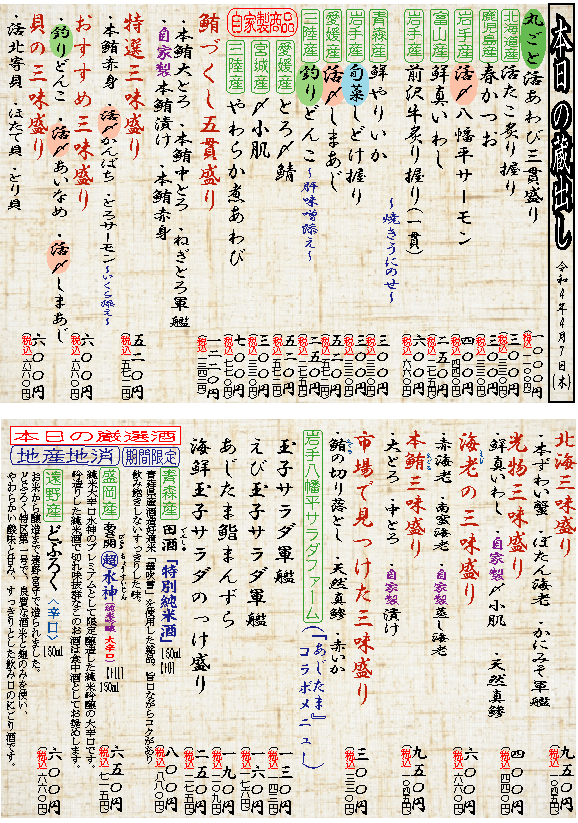 本日の蔵出し
令和4年4月7日(木)
丸ごと 活あわび三貫盛り 一〇〇〇円
(税込)一一〇〇円
北海道産 活たこ炙り握り 三〇〇円
(税込)三三〇円
鹿児島産 春かつお 三〇〇円
(税込)三三〇円
岩手産 活〆八幡平サーモン 四〇〇円
(税込)四四〇円
富山産 鮮真いわし 二五〇円
(税込)二七五円
岩手産 前沢牛炙り握り(一貫) 六〇〇円
(税込)六六〇円
~焼きうにのせ~
青森産 鮮やりいか 三〇〇円
(税込)三三〇円
岩手産 旬菜しどけ握り 二五〇円
(税込)二七五円
愛媛産 活〆しまあじ 五二〇円
(税込)五七二円
三陸産 釣りどんこ~肝味噌添え~ 二五〇円
(税込)二七五円
自家製商品
愛媛産 とろ〆鯖 二五〇円
(税込)二七五円
宮城産 〆小肌 三〇〇円
(税込)三三〇円
三陸産 やわらか煮あわび 七〇〇円
(税込)七七〇円
鮪づくし五貫盛り 一二二〇円
(税込)一三四二円
・本鮪大とろ ・本鮪中とろ ・ねぎとろ軍艦
・自家製本鮪漬け ・本鮪赤身
特選三味盛り 五二〇円
(税込)五七二円
・本鮪赤身 ・活〆かんぱち ・とろサーモン~いくら添え~
おすすめ三味盛り 六〇〇円
(税込)六六〇円
・釣りどんこ ・活〆あいなめ ・活〆しまあじ
貝の三味盛り 六〇〇円
(税込)六六〇円
・活北寄貝 ・ほたて貝 ・とり貝
北海三味盛り 九五〇円
(税込)一〇四五円
・本ずわい蟹 ・ぼたん海老 ・かにみそ軍艦
光物三味盛り 四〇〇円
(税込)四四〇円
・鮮真いわし ・自家製〆小肌 ・天然真鯵
海老の三味盛り 六〇〇円
(税込)六六〇円
・赤海老 ・南蛮海老 ・自家製蒸し海老
本鮪三味盛り 九五〇円
(税込)一〇四五円
・大とろ ・中とろ ・自家製漬け
市場で見つけた三味盛り 三〇〇円
(税込)三三〇円
・鮪の切り落とし ・天然真鯵 ・赤いか
岩手八幡平サラダファーム(『あじたま』コラボメニュー)
玉子サラダ軍艦 一三〇円
(税込)一四三円
えび玉子サラダ軍艦 一六〇円
(税込)一七六円
あじたま鮨まんずら 一九〇円
(税込)二〇九円
海鮮玉子サラダのっけ盛り 二五〇円
(税込)二七五円
本日の厳選酒
地産地消 期間限定
青森産 田酒「特別純米酒」180ml 八〇〇円
(税込)八八〇円
青森県産酒造好適米「華吹雪」を使用した銘品。旨口ながらコクがあり
飲み飽きしないすっきりした味。
盛岡産 超水神 純米吟醸 大辛口 150ml 六五〇円
(税込)七一五円
純米大辛口水神のプレミアムとして限定醸造した純米吟醸の大辛口です。
吟造りした純米酒で切れ味抜群などのお酒は食中酒としてお薦めします。
遠野産 どぶろく〈辛口〉 150ml 六〇〇円
(税込)六六〇円
お米から醸造まで遠野宮守で造られました。
どぶろく特区第一号で、良質な酒米と麹のみを使い、
やわらかい酸味と甘み、すっきりとした飲み口のにごり酒です。